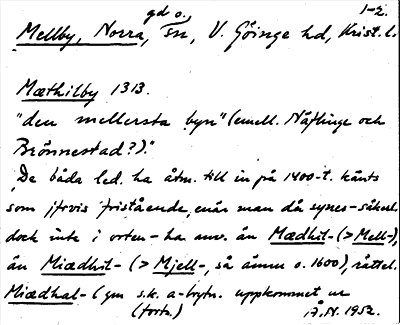 gd o. 1-2.
Mellby, Norra, sn, V. Göinge hd, Krist. l.
Mæthilby 1313.
"den mellersta byn" (emell. Näflinge och
Brönnestad?)."
"De båda led. ha åtm. till in på 1400-t. känts
som jfrvis fristående, enär man då synes - säkerl.
dock inte i orten - ha anv. än Mædhil- (> Mell-),
än Miædhil- (> Mjell-, så ännu o. 1600), rättel.
Miædhal- (gm s.k. a-brytn. uppkommet ur
(forts.) 1952.